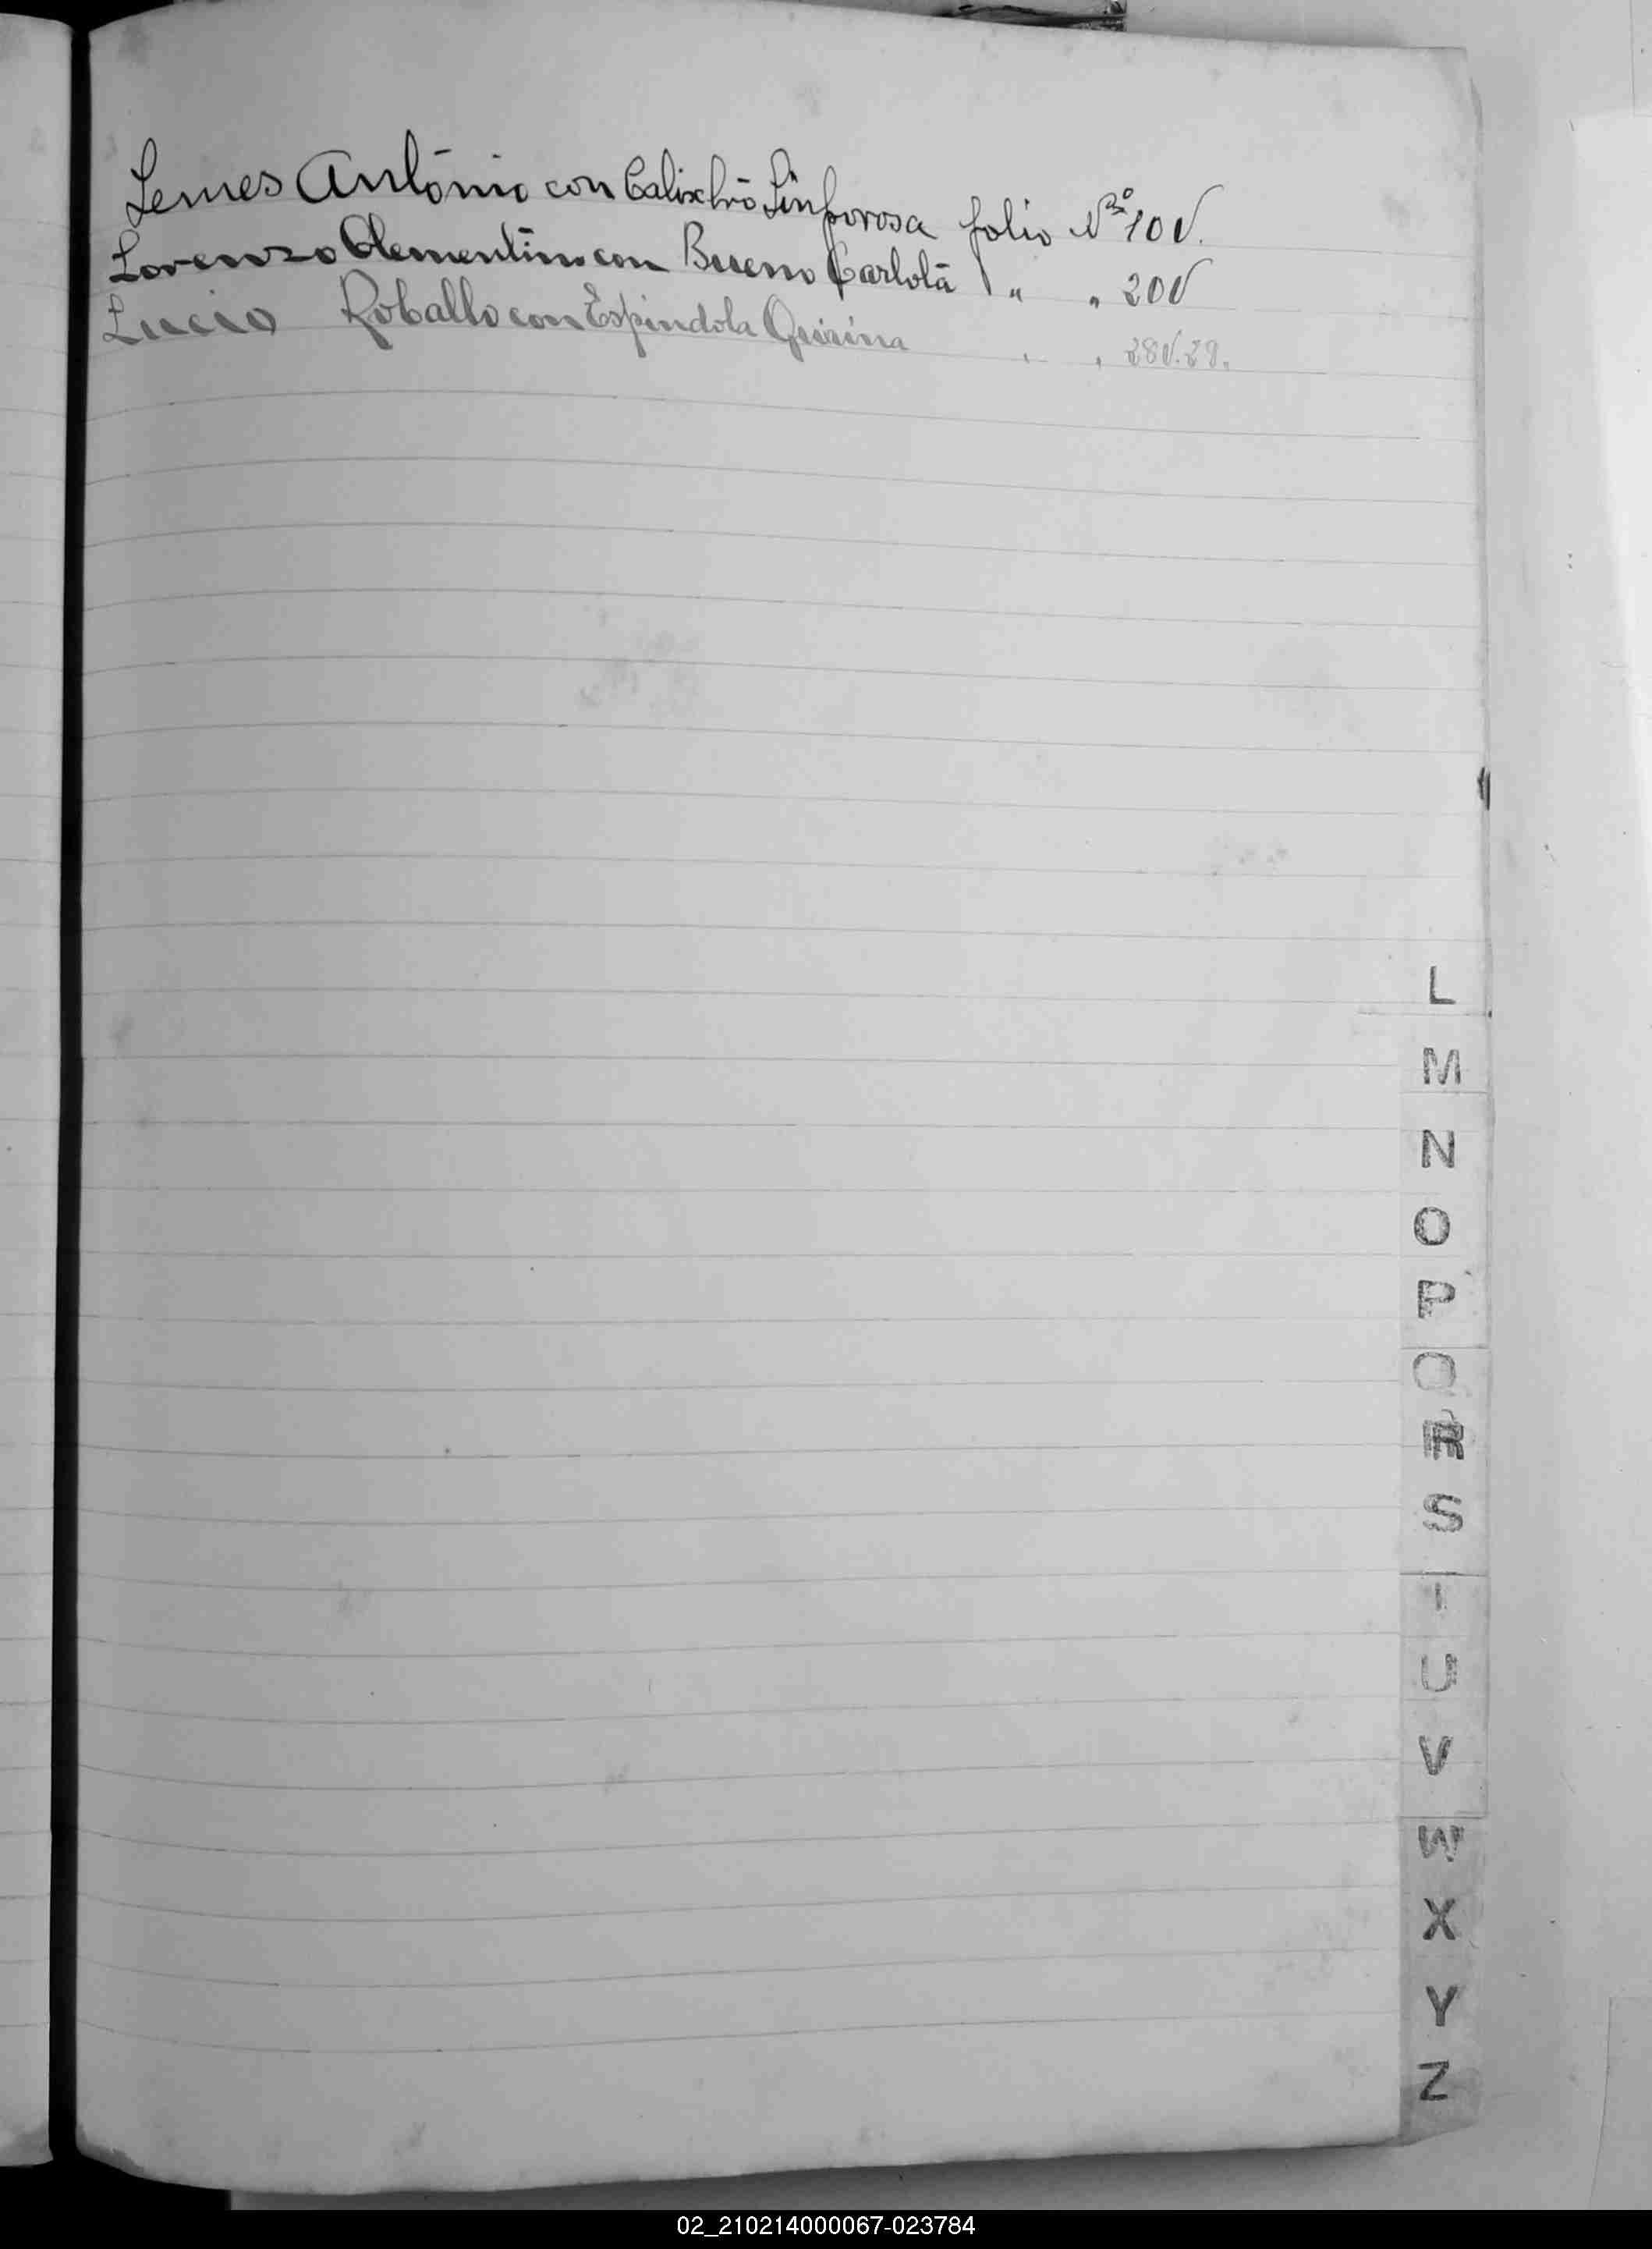 Lemes Antonio con Calixtro Sinforosa folio Nº 10 V.
Lorenzo Clementino con Bueno Carlota " " 20 V
Lucio Roballo con Espindola Quirina " " 28 V. 29.
L
M
N
O
P
Q
R
S
T
U
V
W
X
Y
Z
02_210214000067-023784